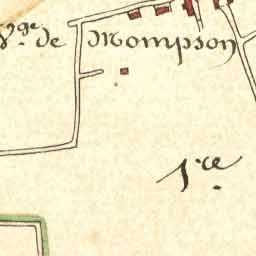 V.ge de Mompson
1.re